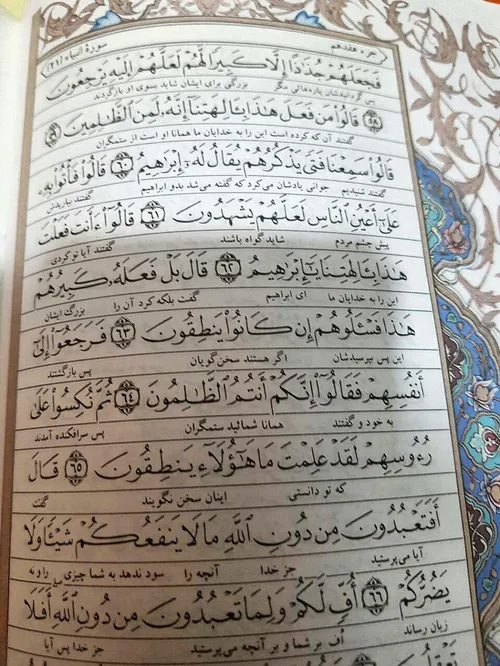 جزء هفدهم
سورهٔ انبیاء (۲۱)
فَجَعَلَهُمْ جُذَٰذًا إِلَّا كَبِيرًا لَّهُمْ لَعَلَّهُمْ إِلَيْهِ يَرْجِعُونَ
پس گردانیدشان پاره‌های مگر بزرگی برای ایشان شاید بسوی او بازگردند
۵۸ قَالُوا۟ مَن فَعَلَ هَٰذَا بِـَٔالِهَتِنَآ إِنَّهُۥ لَمِنَ ٱلظَّٰلِمِينَ ۵۹
گفتند آن که کرده است این را به خدایان ما همانا او است از ستمگران
قَالُوا۟ سَمِعْنَا فَتًى يَذْكُرُهُمْ يُقَالُ لَهُۥٓ إِبْرَٰهِيمُ ۶۰ قَالُوا۟ فَأْتُوا۟ بِهِۦ
گفتند شنیدیم جوانی یادشان می‌کرد که گفته می‌شد بدو ابراهیم گفتند بیاریدش
عَلَىٰٓ أَعْيُنِ ٱلنَّاسِ لَعَلَّهُمْ يَشْهَدُونَ ۶۱ قَالُوٓا۟ ءَأَنتَ فَعَلْتَ
پیش چشم مردم شاید گواه باشند گفتند آیا تو کردی
هَٰذَا بِـَٔالِهَتِنَا يَٰٓإِبْرَٰهِيمُ ۶۲ قَالَ بَلْ فَعَلَهُۥ كَبِيرُهُمْ
این را به خدایان ما ای ابراهیم گفت بلکه کرد آن را بزرگ ایشان
هَٰذَا فَسْـَٔلُوهُمْ إِن كَانُوا۟ يَنطِقُونَ ۶۳ فَرَجَعُوٓا۟ إِلَىٰٓ
این پس بپرسیدشان اگر هستند سخن‌گویان پس بازگشتند
أَنفُسِهِمْ فَقَالُوٓا۟ إِنَّكُمْ أَنتُمُ ٱلظَّٰلِمُونَ ۶۴ ثُمَّ نُكِسُوا۟ عَلَىٰ
به خود و گفتند همانا شمائید ستمگران پس سرافکنده آمدند
رُءُوسِهِمْ لَقَدْ عَلِمْتَ مَا هَٰٓؤُلَآءِ يَنطِقُونَ ۶۵ قَالَ
که تو دانستی اینان سخن نگویند گفت
أَفَتَعْبُدُونَ مِن دُونِ ٱللَّهِ مَا لَا يَنفَعُكُمْ شَيْـًٔا وَلَا
آیا می‌پرستید جز خدا آنچه را سود ندهد به شما چیزی را و نه
يَضُرُّكُمْ ۶۶ أُفٍّ لَّكُمْ وَلِمَا تَعْبُدُونَ مِن دُونِ ٱللَّهِ أَفَلَا
زیان رساند اُف بر شما و بر آنچه می‌پرستید جز خدا پس آیا